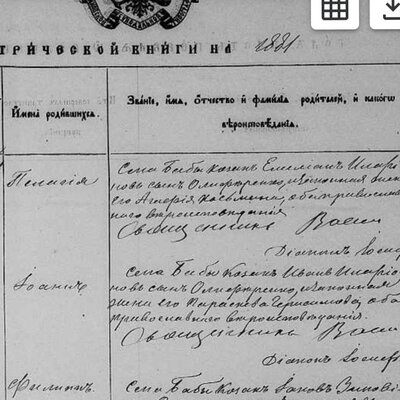 трической книги на 1881
Имена родившихся.
Званіе, имя, отчество и фамилія родителей, и какого
вѣроисповѣданія.
Пелагія
Села Бабы Козакъ Емеліанъ Иларіо
новъ сынъ Олифиренко, и законная жена
его Агафія Касьмена, оба православ
наго вѣроисповѣданія
Священникъ Васи
Діаконъ Іосиф
Іоаннъ
Села Бабы Козакъ Иванъ Иларіо
новъ сынъ Олифиренко, и законная
жена его Параскева Герасимова, оба
православнаго вѣроисповѣданія.
Священникъ Васи
Діаконъ Іосиф
Филиппъ
Села Бабы Козакъ Іаковъ